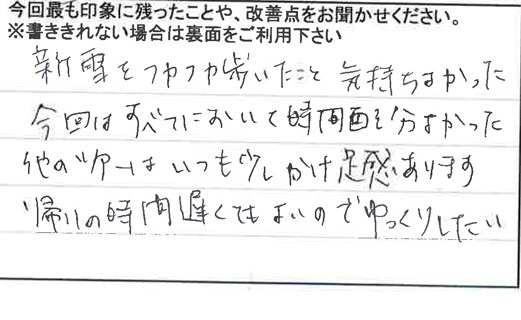 今回最も印象に残ったことや、改善点をお聞かせください。
※書ききれない場合は裏面をご利用下さい
新雪をフカフカ歩いたこと 気持ちよかった
今回はすべてにおいて時間面も分よかった
他のツアーはいつも少しかけ足感あります
帰りの時間遅くてもよいのでゆっくりしたい